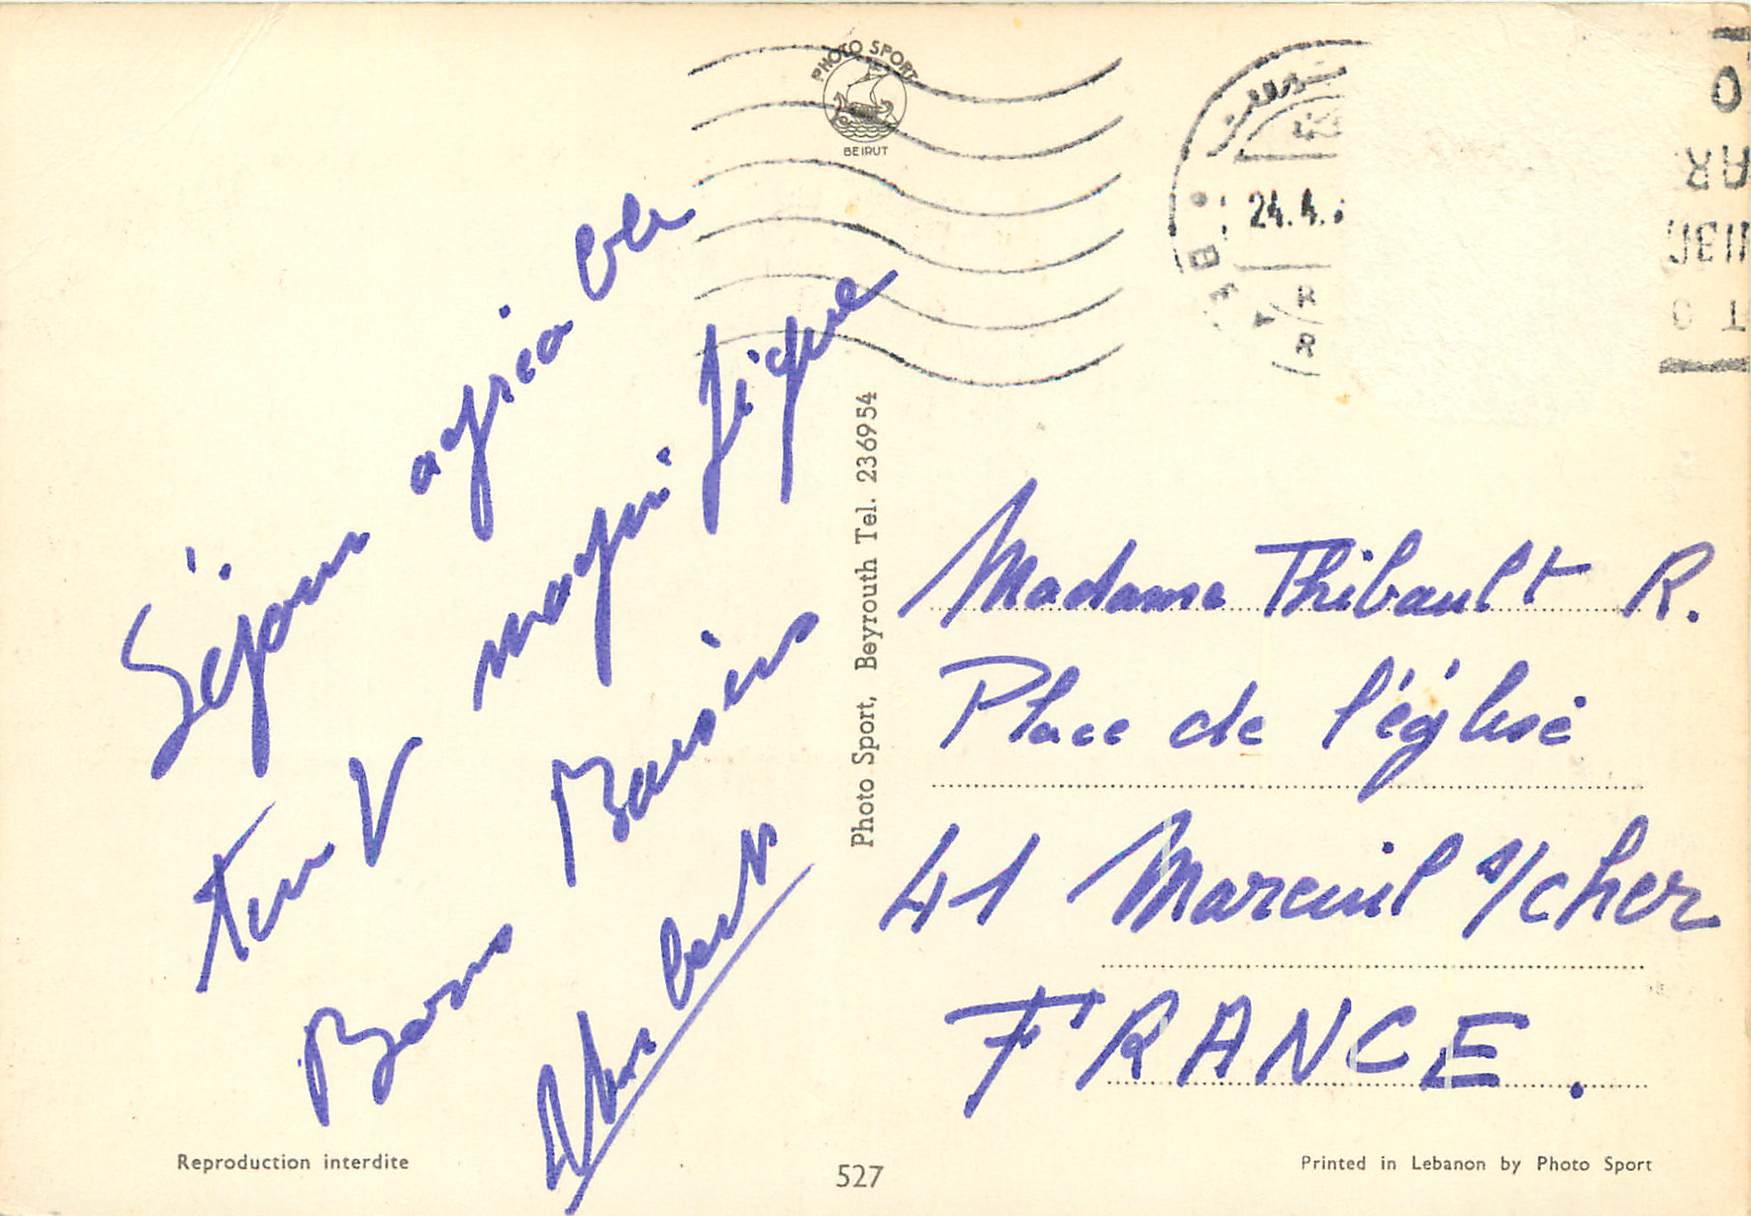 Séjour agréable
temps magnifique
Bons Baisers
PHOTO SPORT
BEIRUT
24.4.
Photo Sport, Beyrouth Tel. 236954
Madame Thibault R.
Place de l'église
41 Mareuil s/cher
FRANCE.
Reproduction interdite
527
Printed in Lebanon by Photo Sport